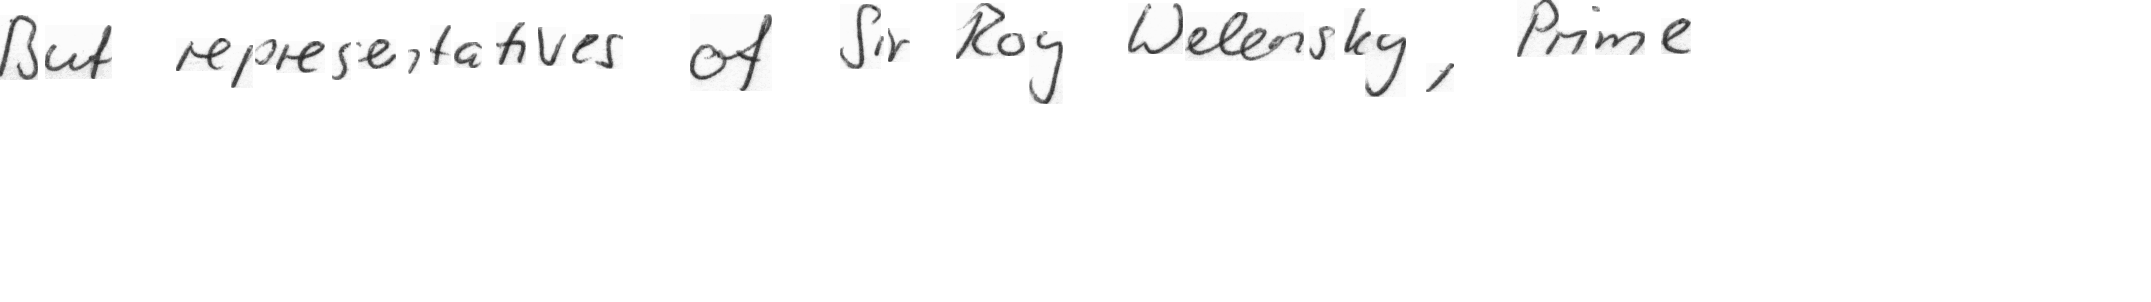 But representatives of Sir Roy Welensky, Prime